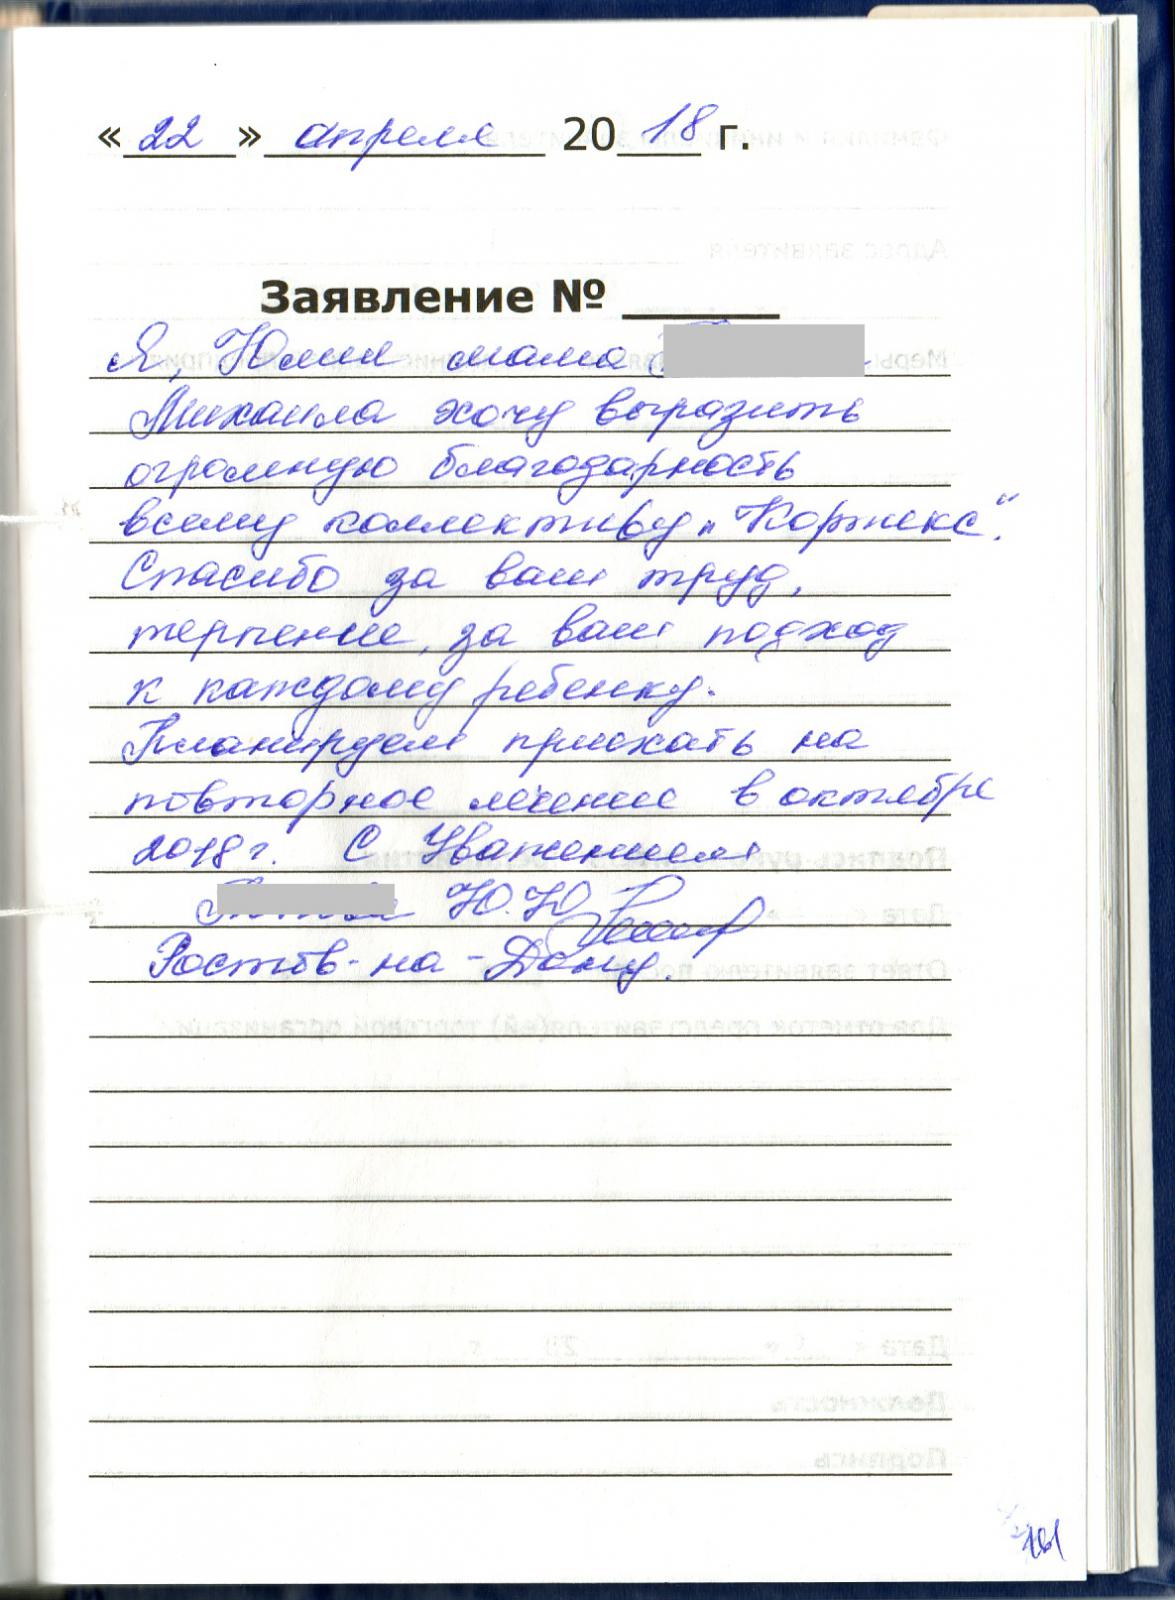 « 22 » апреля 20 18 г.
Заявление № ______
Я, Юлия мама
Михаила хочу выразить
огромную благодарность
всему коллективу „Кортекс“.
Спасибо за ваш труд,
терпение, за ваш подход
к каждому ребенку.
Планируем приехать на
повторное лечение в октябре
2018 г. С Уважением
Ю.Ю.
Ростов-на-Дону.
161